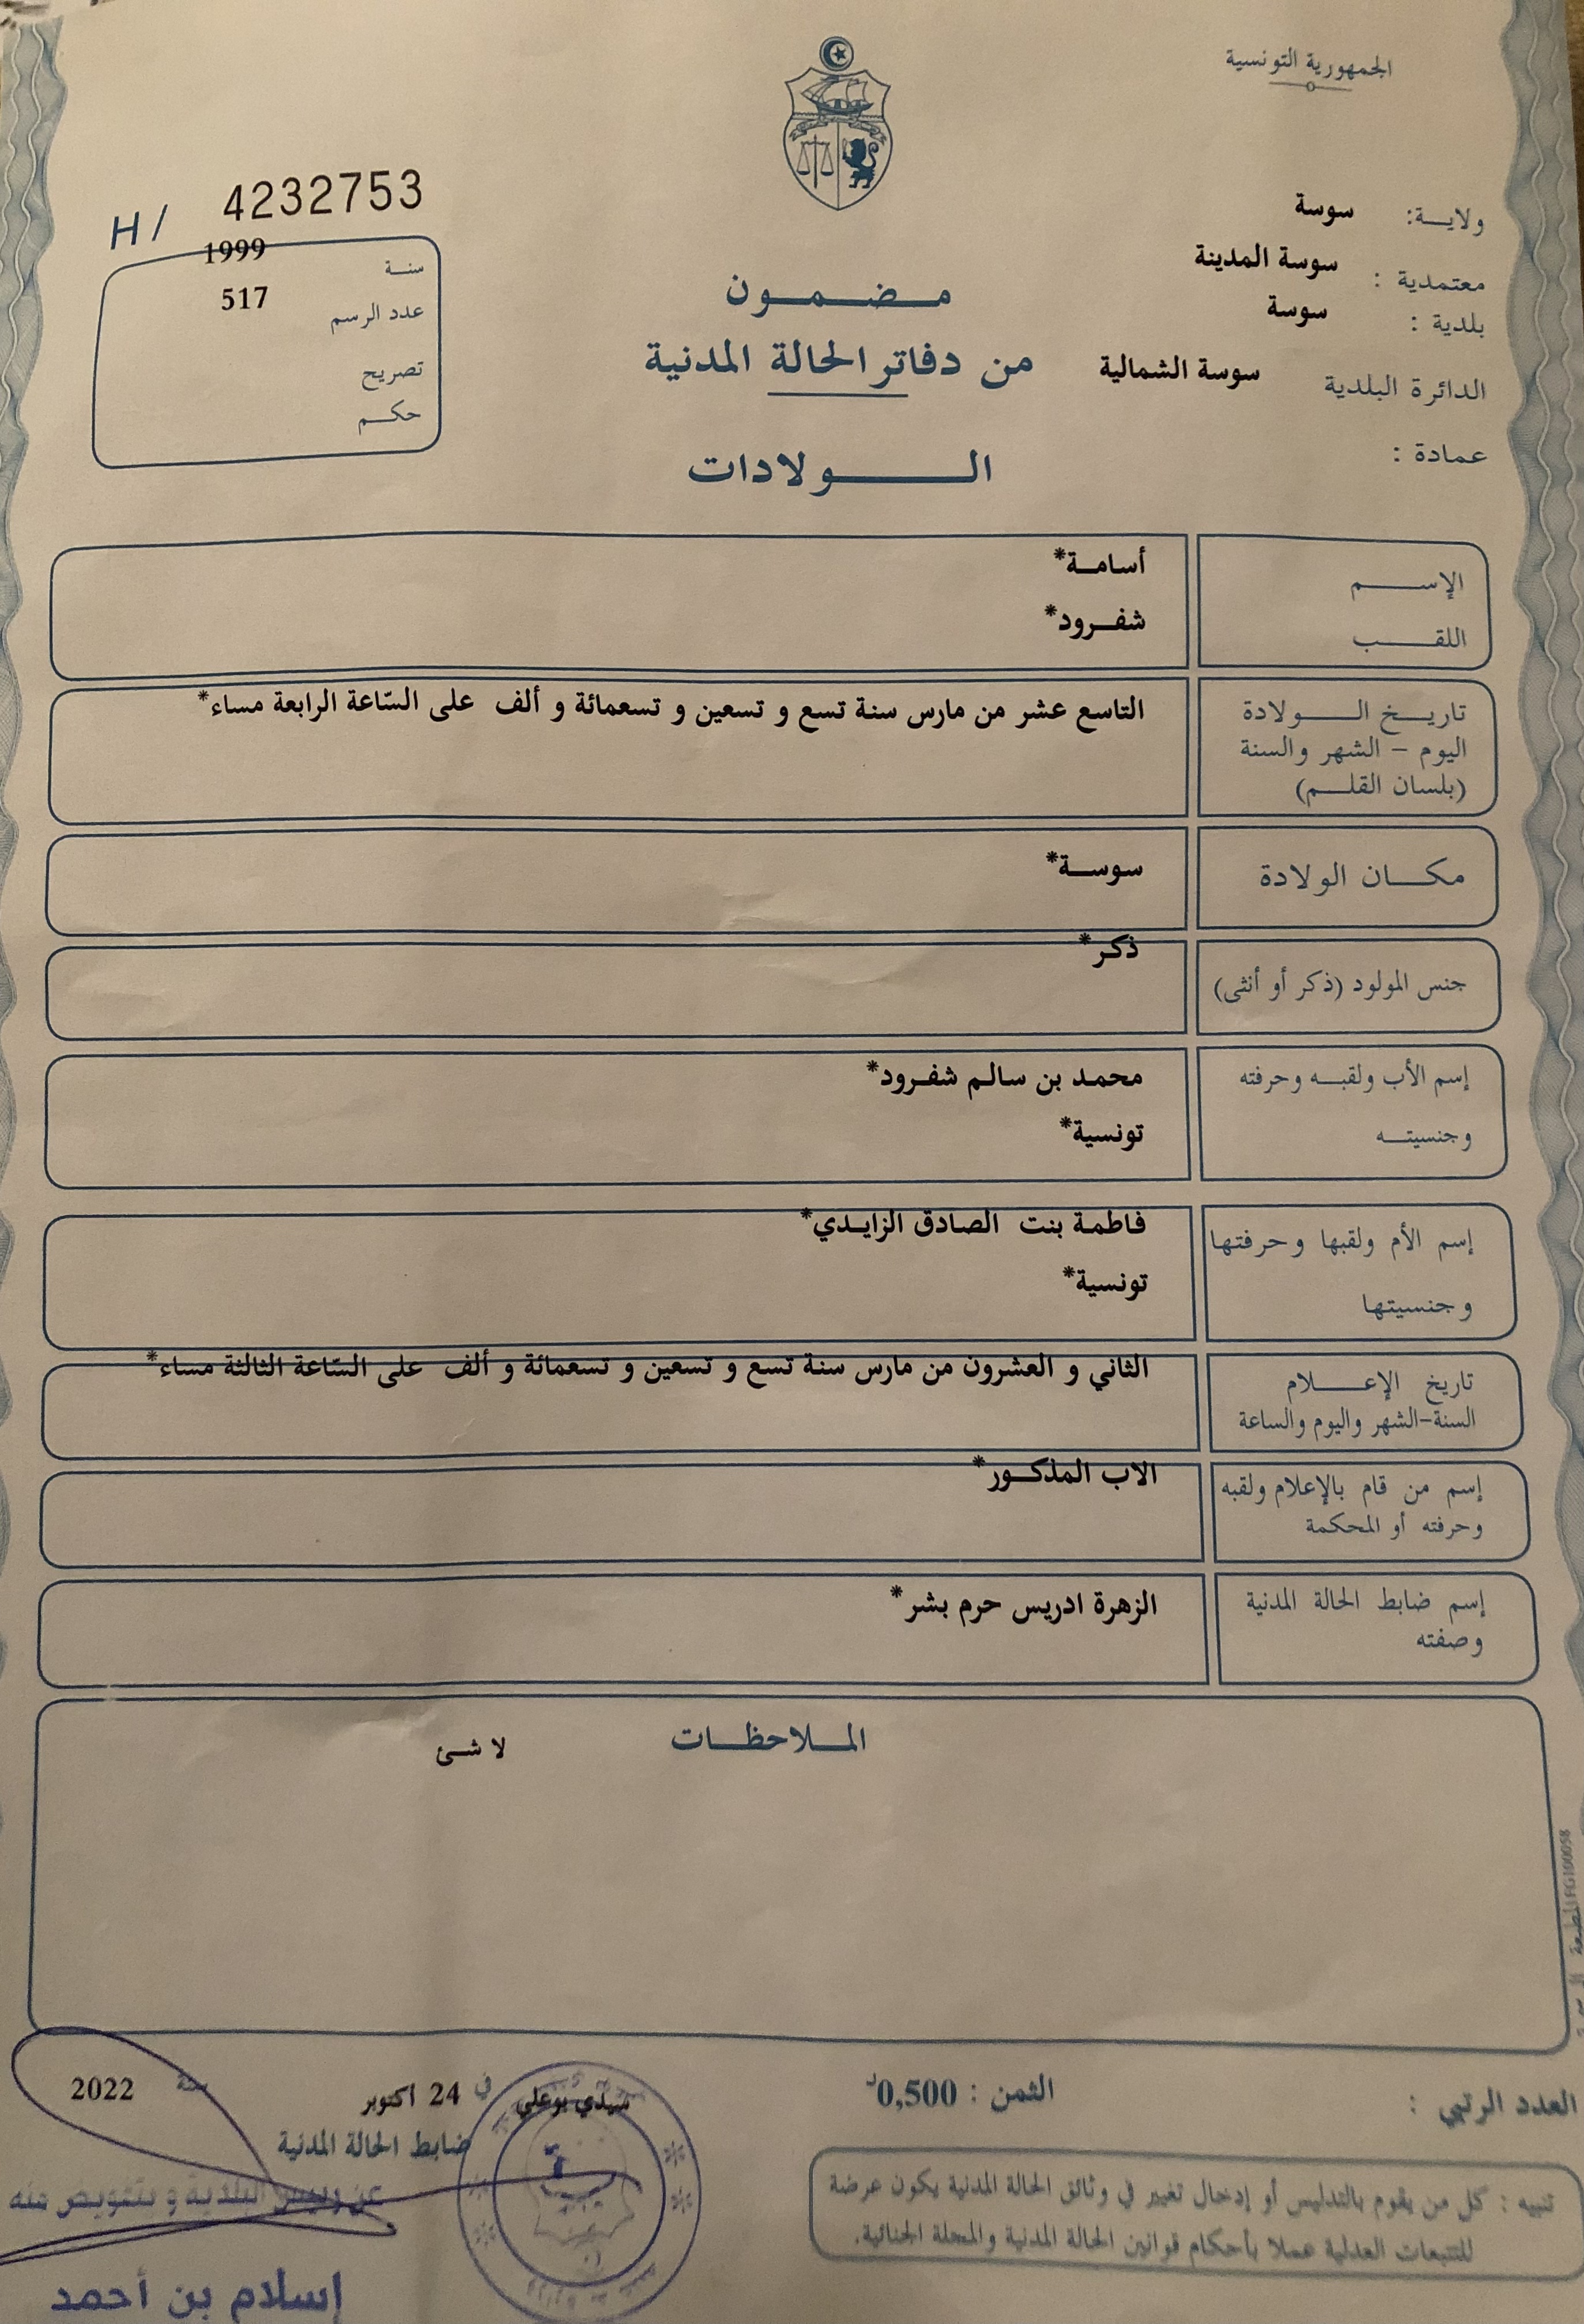 الجمهورية التونسية
ولايـة: سوسة
معتمدية : سوسة المدينة
بلدية : سوسة
الدائرة البلدية سوسة الشمالية
عمادة :
H/ 4232753
سنـة 1999
عدد الرسم 517
تصريح
حكـم
مـضـمـون
من دفاتر الحالة المدنية
الـولادات
الإسـم أسامـة*
اللقـب شفـرود*
تاريـخ الـولادة التاسع عشر من مارس سنة تسع و تسعين و تسعمائة و ألف على السّاعة الرابعة مساء*
اليوم - الشهر والسنة
(بلسان القلـم)
مكـان الولادة سوسـة*
جنس المولود (ذكر أو أنثى) ذكر*
إسم الأب ولقبـه وحرفته محمد بن سالم شفرود*
وجنسيتـه تونسية*
إسم الأم ولقبها وحرفتها فاطمة بنت الصادق الزايدي*
وجنسيتها تونسية*
تاريخ الإعـلام الثاني و العشرون من مارس سنة تسع و تسعين و تسعمائة و ألف على السّاعة الثالثة مساء*
السنة-الشهر واليوم والساعة
إسم من قام بالإعلام ولقبه الاب المذكـور*
وحرفته أو المحكمة
إسم ضابط الحالة المدنية الزهرة ادريس حرم بشر*
وصفته
الملاحظـات
لا شئ
العدد الرتبي :
الثمن : 0,500د
سيدي بوعلي في 24 اكتوبر سنة 2022
ضابط الحالة المدنية
عن رئيس البلدية و بتفويض منه
إسلام بن أحمد
تنبيه : كل من يقوم بالتدليس أو إدخال تغيير في وثائق الحالة المدنية يكون عرضة
للتتبعات العدلية عملا بأحكام قوانين الحالة المدنية والمجلة الجنائية.